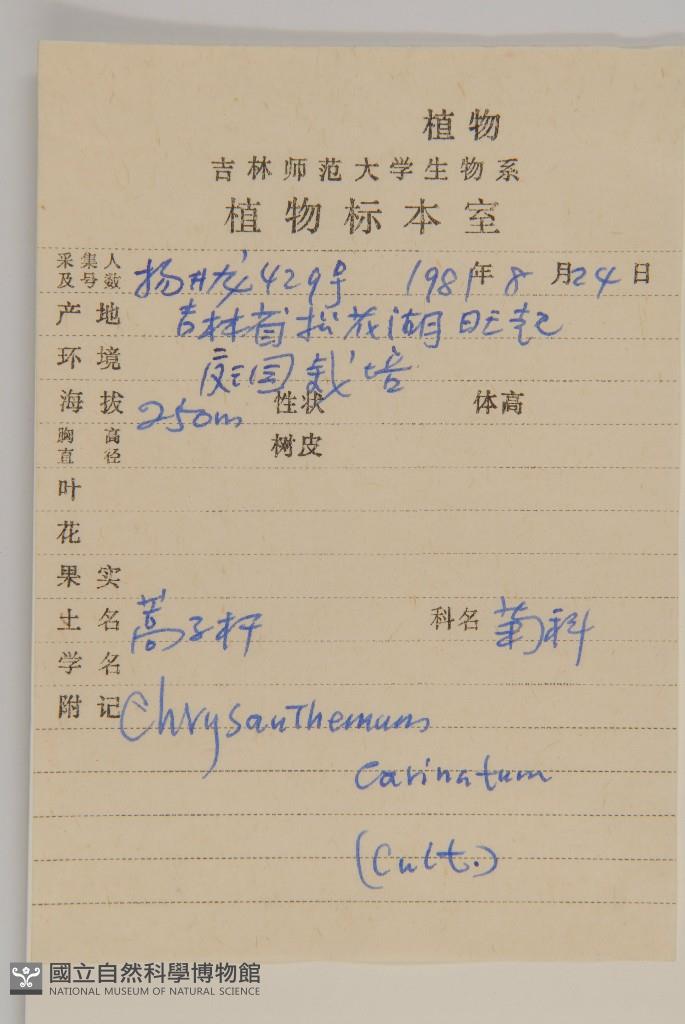 植物
吉林师范大学生物系
植物标本室
采集人及号数 扬 429号 1981年8月24日
产地 吉林省松花湖
环境 庭园栽培
海拔 250m 性状 体高
胸高直径 树皮
叶
花
果实
土名 蒿子杆 科名 菊科
学名
附记 Chrysanthemum
carinatum
(Cult.)
國立自然科學博物館
NATIONAL MUSEUM OF NATURAL SCIENCE